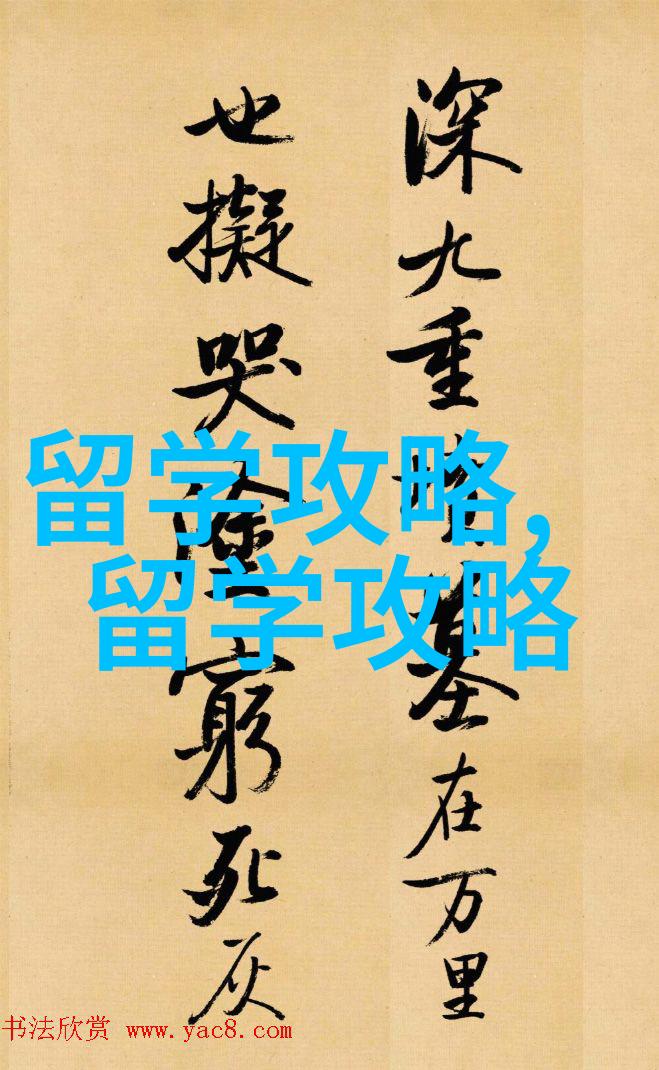 深九重墳墓在万里
也擬哭塗窮死灰
留学攻略,
留学攻略
书法欣赏 www.yac8.com